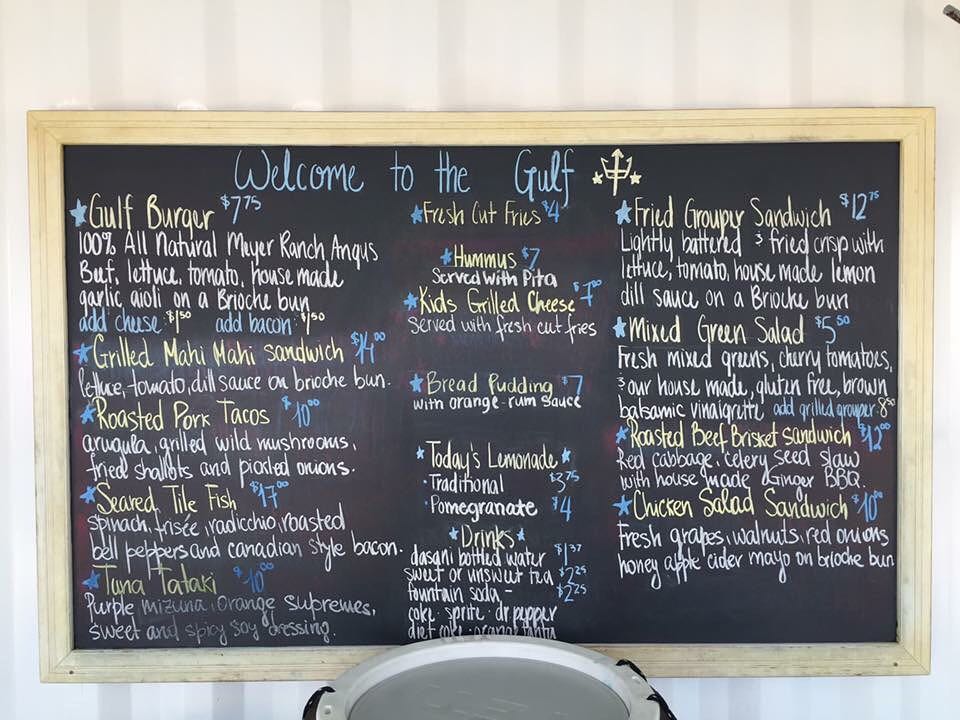 Welcome to the Gulf
Gulf Burger $7.75
100% All Natural Meyer Ranch Angus
Beef, lettuce, tomato, house made
garlic aioli on a Brioche bun
add cheese: $1.50 add bacon: $1.50
Grilled Mahi Mahi Sandwich $14.00
lettuce, tomato, dill sauce on brioche bun.
Roasted Pork Tacos $10.00
arugula, grilled wild mushrooms,
fried shallots and pickled onions.
Seared Tile Fish $17.00
spinach, frisée, radicchio, roasted
bell peppers and canadian style bacon.
Tuna Tataki $10.00
Purple mizuna, orange supremes,
sweet and spicy soy dressing.
Fresh Cut Fries $4
Hummus $7
Served with Pita
Kids Grilled Cheese $7.00
Served with fresh cut fries
Bread Pudding $7
with orange-rum sauce
Today's Lemonade
Traditional $3.75
Pomegranate $4
Drinks
dasani bottled water $1.37
sweet or unsweet tea $2.25
fountain soda - $2.25
coke · sprite · dr pepper
diet coke · orange fanta
Fried Grouper Sandwich $12.75
Lightly battered & fried crisp with
lettuce, tomato, house made lemon
dill sauce on a Brioche bun
Mixed Green Salad $5.50
Fresh mixed greens, cherry tomatoes,
& our house made, gluten free, brown
balsamic vinaigrette add grilled grouper: 8.50
Roasted Beef Brisket Sandwich $12.00
Red cabbage, celery seed slaw
with house made Ginger BBQ.
Chicken Salad Sandwich $10.00
Fresh grapes, walnuts, red onions
honey apple cider mayo on brioche bun